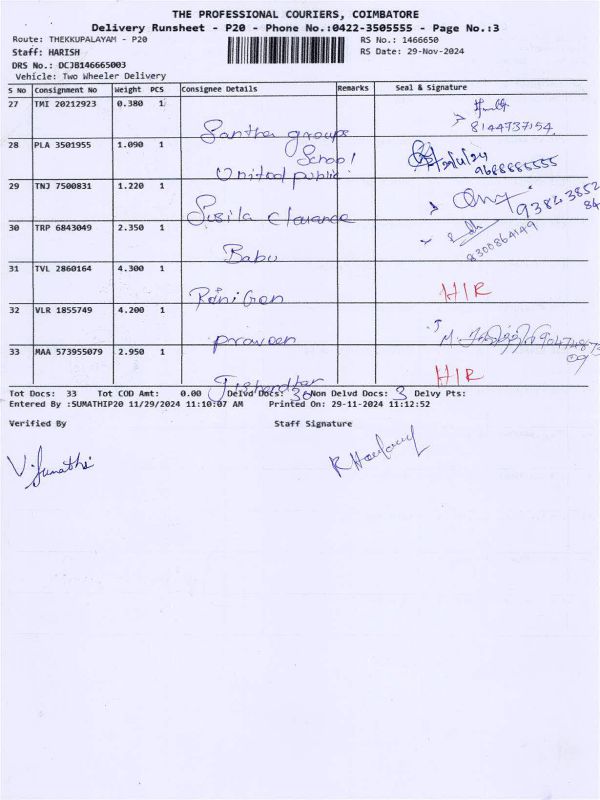 THE PROFESSIONAL COURIERS, COIMBATORE
Delivery Runsheet - P20 - Phone No.:0422-3505555 - Page No.:3
Route: THEKKUPALAYAM - P20 RS No.: 1466650
Staff: HARISH RS Date: 29-Nov-2024
DRS No.: DCJB146665003
Vehicle: Two Wheeler Delivery
S No Consignment No Weight PCS Consignee Details Remarks Seal & Signature
27 TMI 20212923 0.380 1
Santha groups 8144737154
28 PLA 3501955 1.090 1
School 29/11/24
United public 9688885555
29 TNJ 7500831 1.220 1
Susila Clarance
30 TRP 6843049 2.350 1
Babu 8300864149
31 TVL 2860164 4.300 1
HIR
32 VLR 1855749 4.200 1
praveen M.
33 MAA 573955079 2.950 1
HIR
Tot Docs: 33 Tot COD Amt: 0.00 Delvd Docs: 30 Non Delvd Docs: 3 Delvy Pts:
Entered By :SUMATHIP20 11/29/2024 11:10:07 AM Printed On: 29-11-2024 11:12:52
Verified By Staff Signature
V. Sumathi